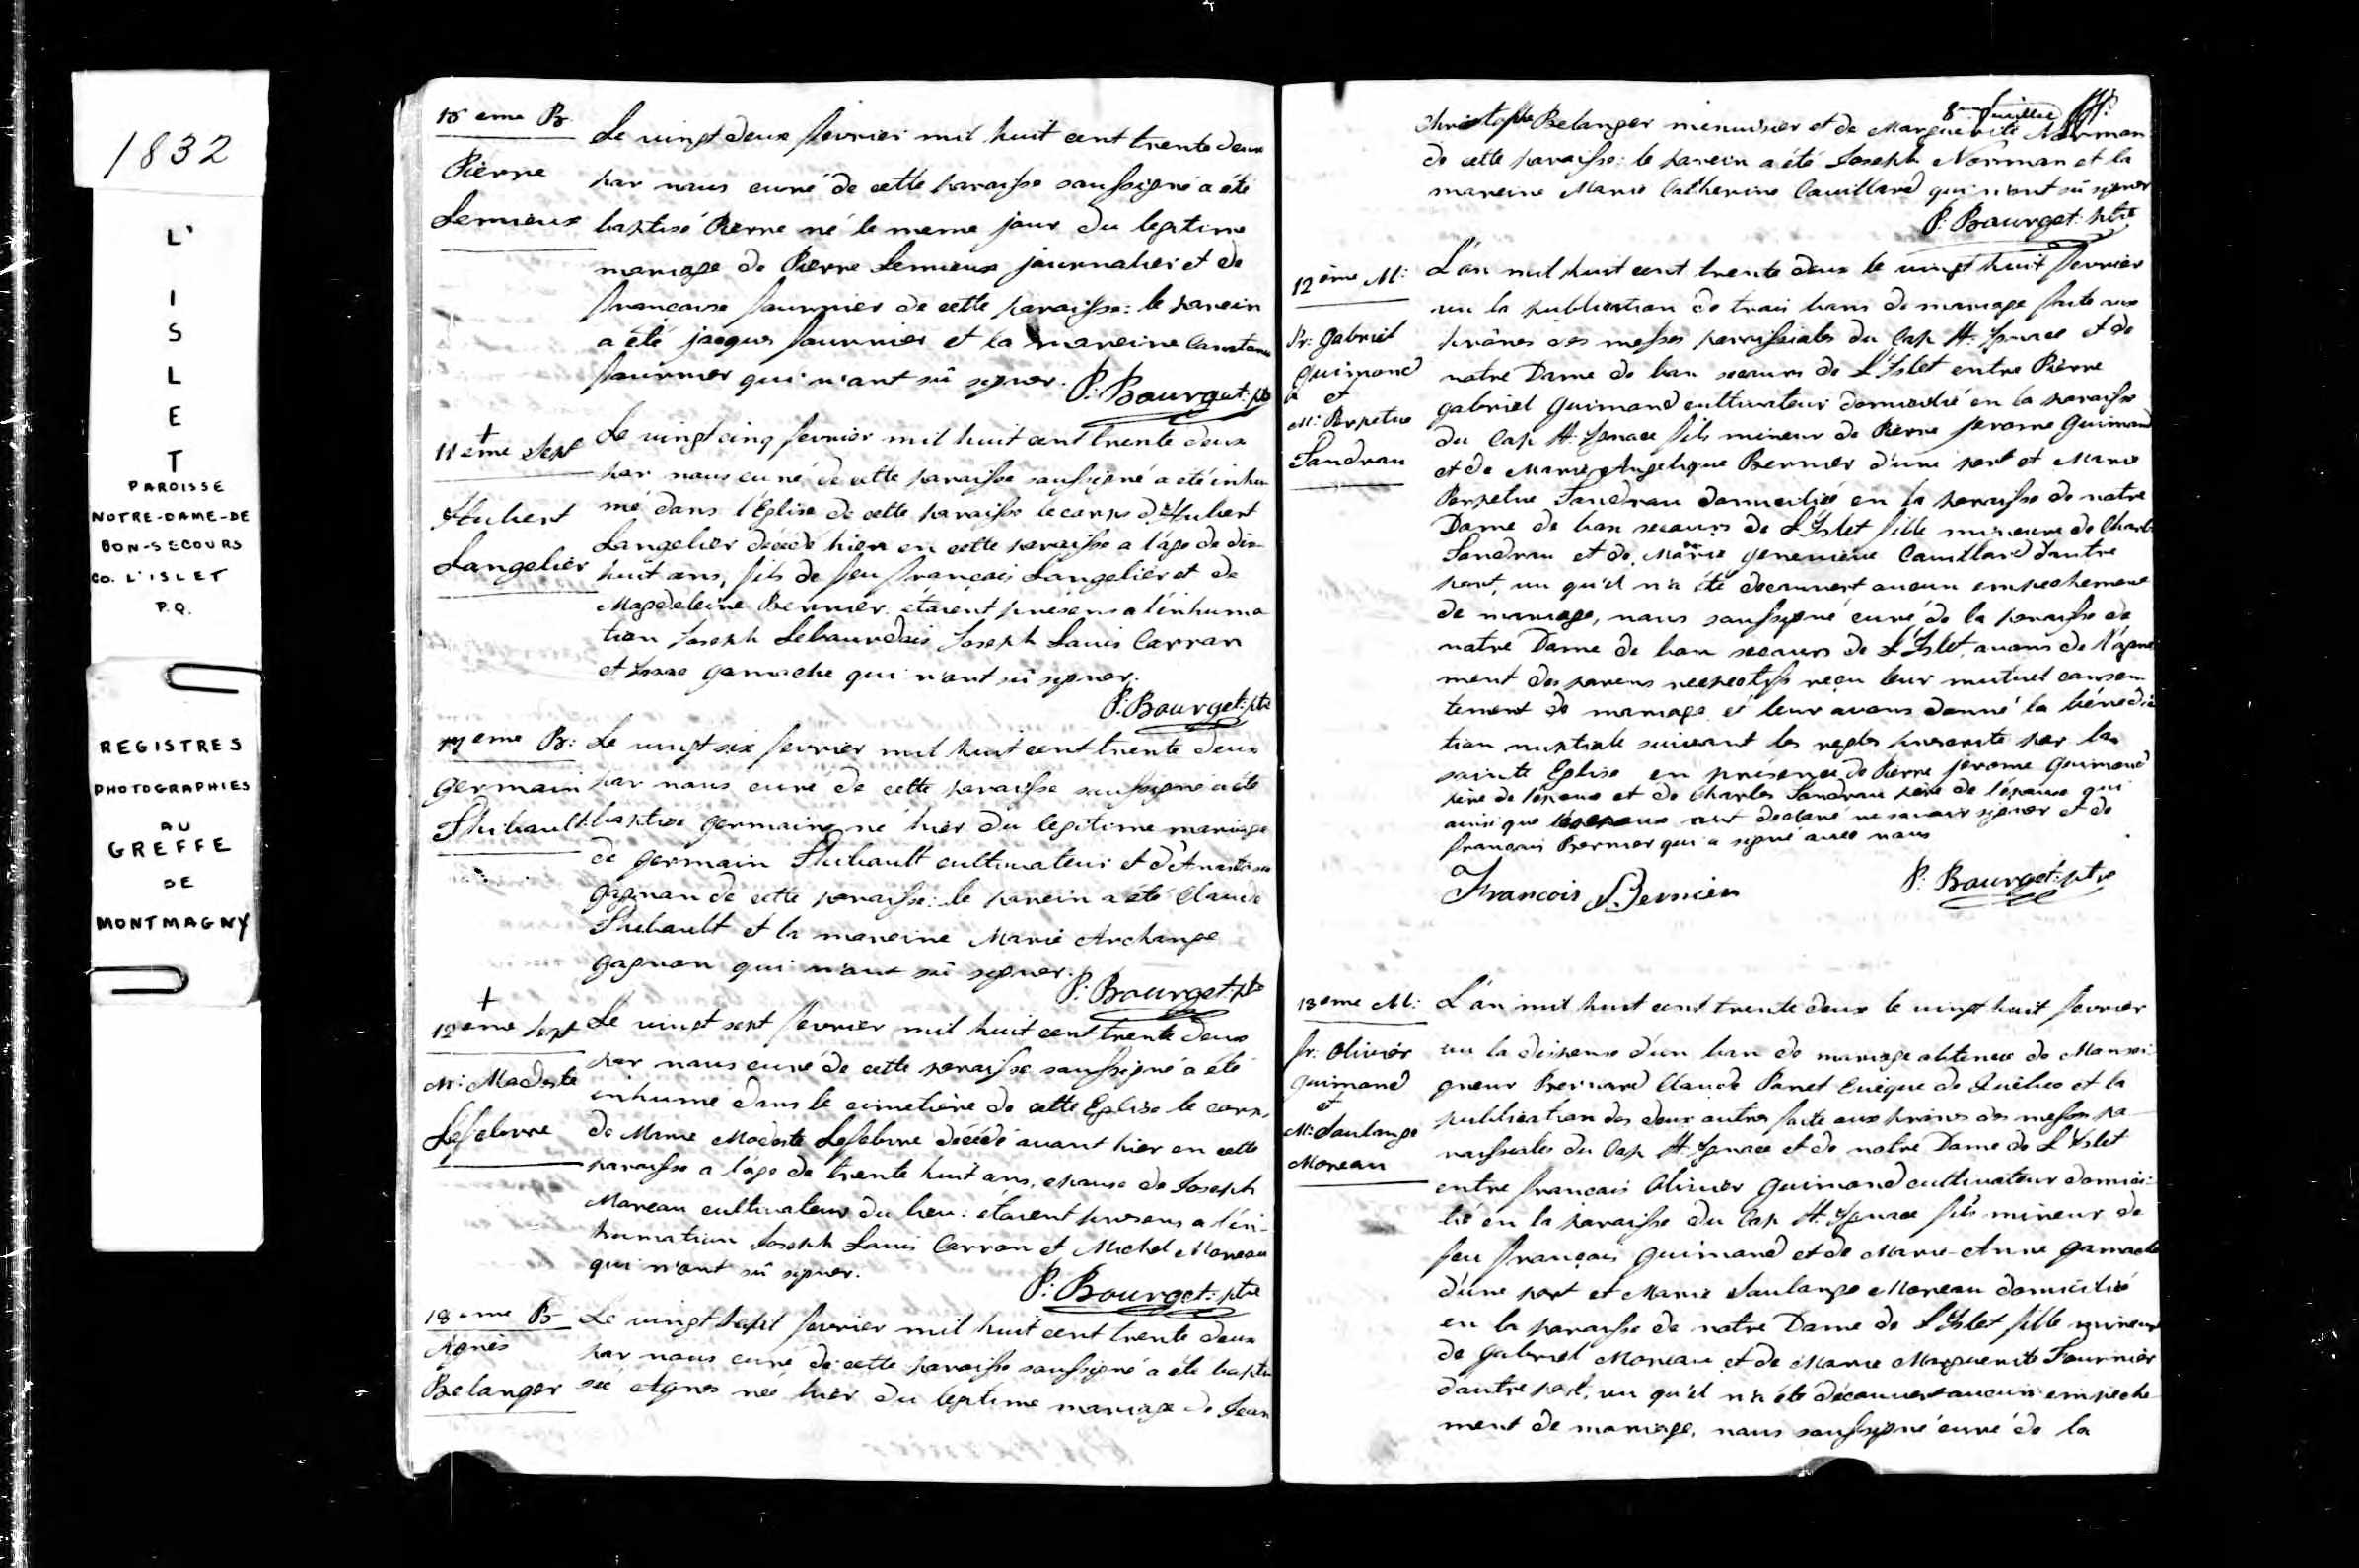 1832
L'
I
S
L
E
T
PAROISSE
NOTRE-DAME-DE
BON-SECOURS
CO. L'ISLET
P.Q.
REGISTRES
PHOTOGRAPHIES
AU
GREFFE
DE
MONTMAGNY
16 eme B
Pierre
Lemieux
Le vingt deux fevrier mil huit cent trente deux
par nous curé de cette paroisse soussigné a été
baptisé Pierre né le meme jour du legitime
mariage de Pierre Lemieux journalier et de
françoise fournier de cette paroisse: le parein
a été jacques fournier et la mareine Constance
fournier qui n'ont sû signer. P: Bourget: ptre
+
11 eme Sep
Hubert
Langelier
Le vingt cinq fevrier mil huit cent trente deux
par nous curé de cette paroisse soussigné a été inhu
mé dans l'Eglise de cette paroisse le corps d'Hubert
Langelier décédé hier en cette paroisse a l'âge de dix
huit ans, fils de feu françois Langelier et de
Magdeleine Bernier. étaient présens a l'inhuma
tion Joseph Lebourdais Joseph Louis Carran
et Isaac gamache qui n'ont sû signer.
P: Bourget: ptre
17 eme B:
germain
Thibault
Le vingt six fevrier mil huit cent trente deux
par nous curé de cette paroisse soussigné a été
baptisé germain né hier du legitime mariage
de germain Thibault cultivateur et d'Anastasie
gagnon de cette paroisse: le parein a été Claude
Thibault et la mareine Marie Archange
gagnon qui n'ont sû signer.
P: Bourget: ptre
+
12 eme Sep
M: Modeste
Lefebvre
Le vingt sept fevrier mil huit cent trente deux
par nous curé de cette paroisse soussigné a été
inhumé dans le cimetière de cette Eglise le corps
de Marie Modeste Lefebvre décédé avant hier en cette
paroisse a l'âge de trente huit ans, epouse de Joseph
Moreau cultivateur du lieu: étaient presens a l'in-
humation Joseph Louis Carron et Michel Moreau
qui n'ont sû signer.
P: Bourget: ptre
18 eme B
Agnès
Belanger
Le vingt sept fevrier mil huit cent trente deux
par nous curé de cette paroisse soussigné a été bapti
sée Agnes née hier du legitime mariage de Jean
8me feuillet
Christophe Belanger menuisier et de Marguerite Norman
de cette paroisse: le parein a été Joseph Norman et la
mareine Marie Catherine Couillard qui n'ont sû signer
P: Bourget: ptre
12 ème M:
Pr: gabriel
guimond
et
M: Perpetue
Landrau
L'an mil huit cent trente deux le vingt huit fevrier
vu la publication de trois bans de mariage faite aux
prônes des messes paroissiales du Cap St. Ignace et de
notre Dame de bon secours de L'Islet entre Pierre
gabriel Guimond cultivateur domicilié en la paroisse
du Cap St. Ignace fils mineur de Pierre jerome Guimond
et de Marie Angelique Bernier d'une part et Marie
Perpetue Landrau domiciliée en la paroisse de notre
Dame de bon secours de L'Islet fille mineure de Charles
Landrau et de Marie genevieve Couillard d'autre
part, vu qu'il n'a été decouvert aucun empechement
de mariage, nous soussigné curé de la paroisse de
notre Dame de bon secours de L'Islet, avons de l'agré
ment des parens respectifs reçu leur mutuel consen
tement de mariage et leur avons donné la bénedic
tion nuptiale suivant les regles prescrite par la
sainte Eglise en présence de Pierre jerome Guimond
père de l'epoux et de Charles Landrau père de l'épouse qui
ainsi que les epoux ont declaré ne savoir signer et de
françois Bernier qui a signé avec nous
Francois Bernier
P: Bourget: ptre
13 eme M:
fr: Olivier
guimond
et
M: Soulange
Moreau
L'an mil huit cent trente deux le vingt huit fevrier
vu la dispense d'un ban de mariage obtenue de Monsei-
gneur Bernard Claude Panet Evêque de Québec et la
publication des deux autres faite aux prônes des messes pa
roissiales du Cap St. Ignace et de notre Dame de L'Islet
entre françois Olivier Guimond cultivateur domici-
lié en la paroisse du Cap St. Ignace fils mineur de
feu françois Guimond et de Marie-Anne Gamache
d'une part et Marie Soulange Moreau domiciliée
en la paroisse de notre Dame de L'Islet fille mineure
de gabriel Moreau et de Marie Marguerite Fournier
d'autre part, vu qu'il n'a été découvert aucun empeche-
ment de mariage, nous soussigné curé de la